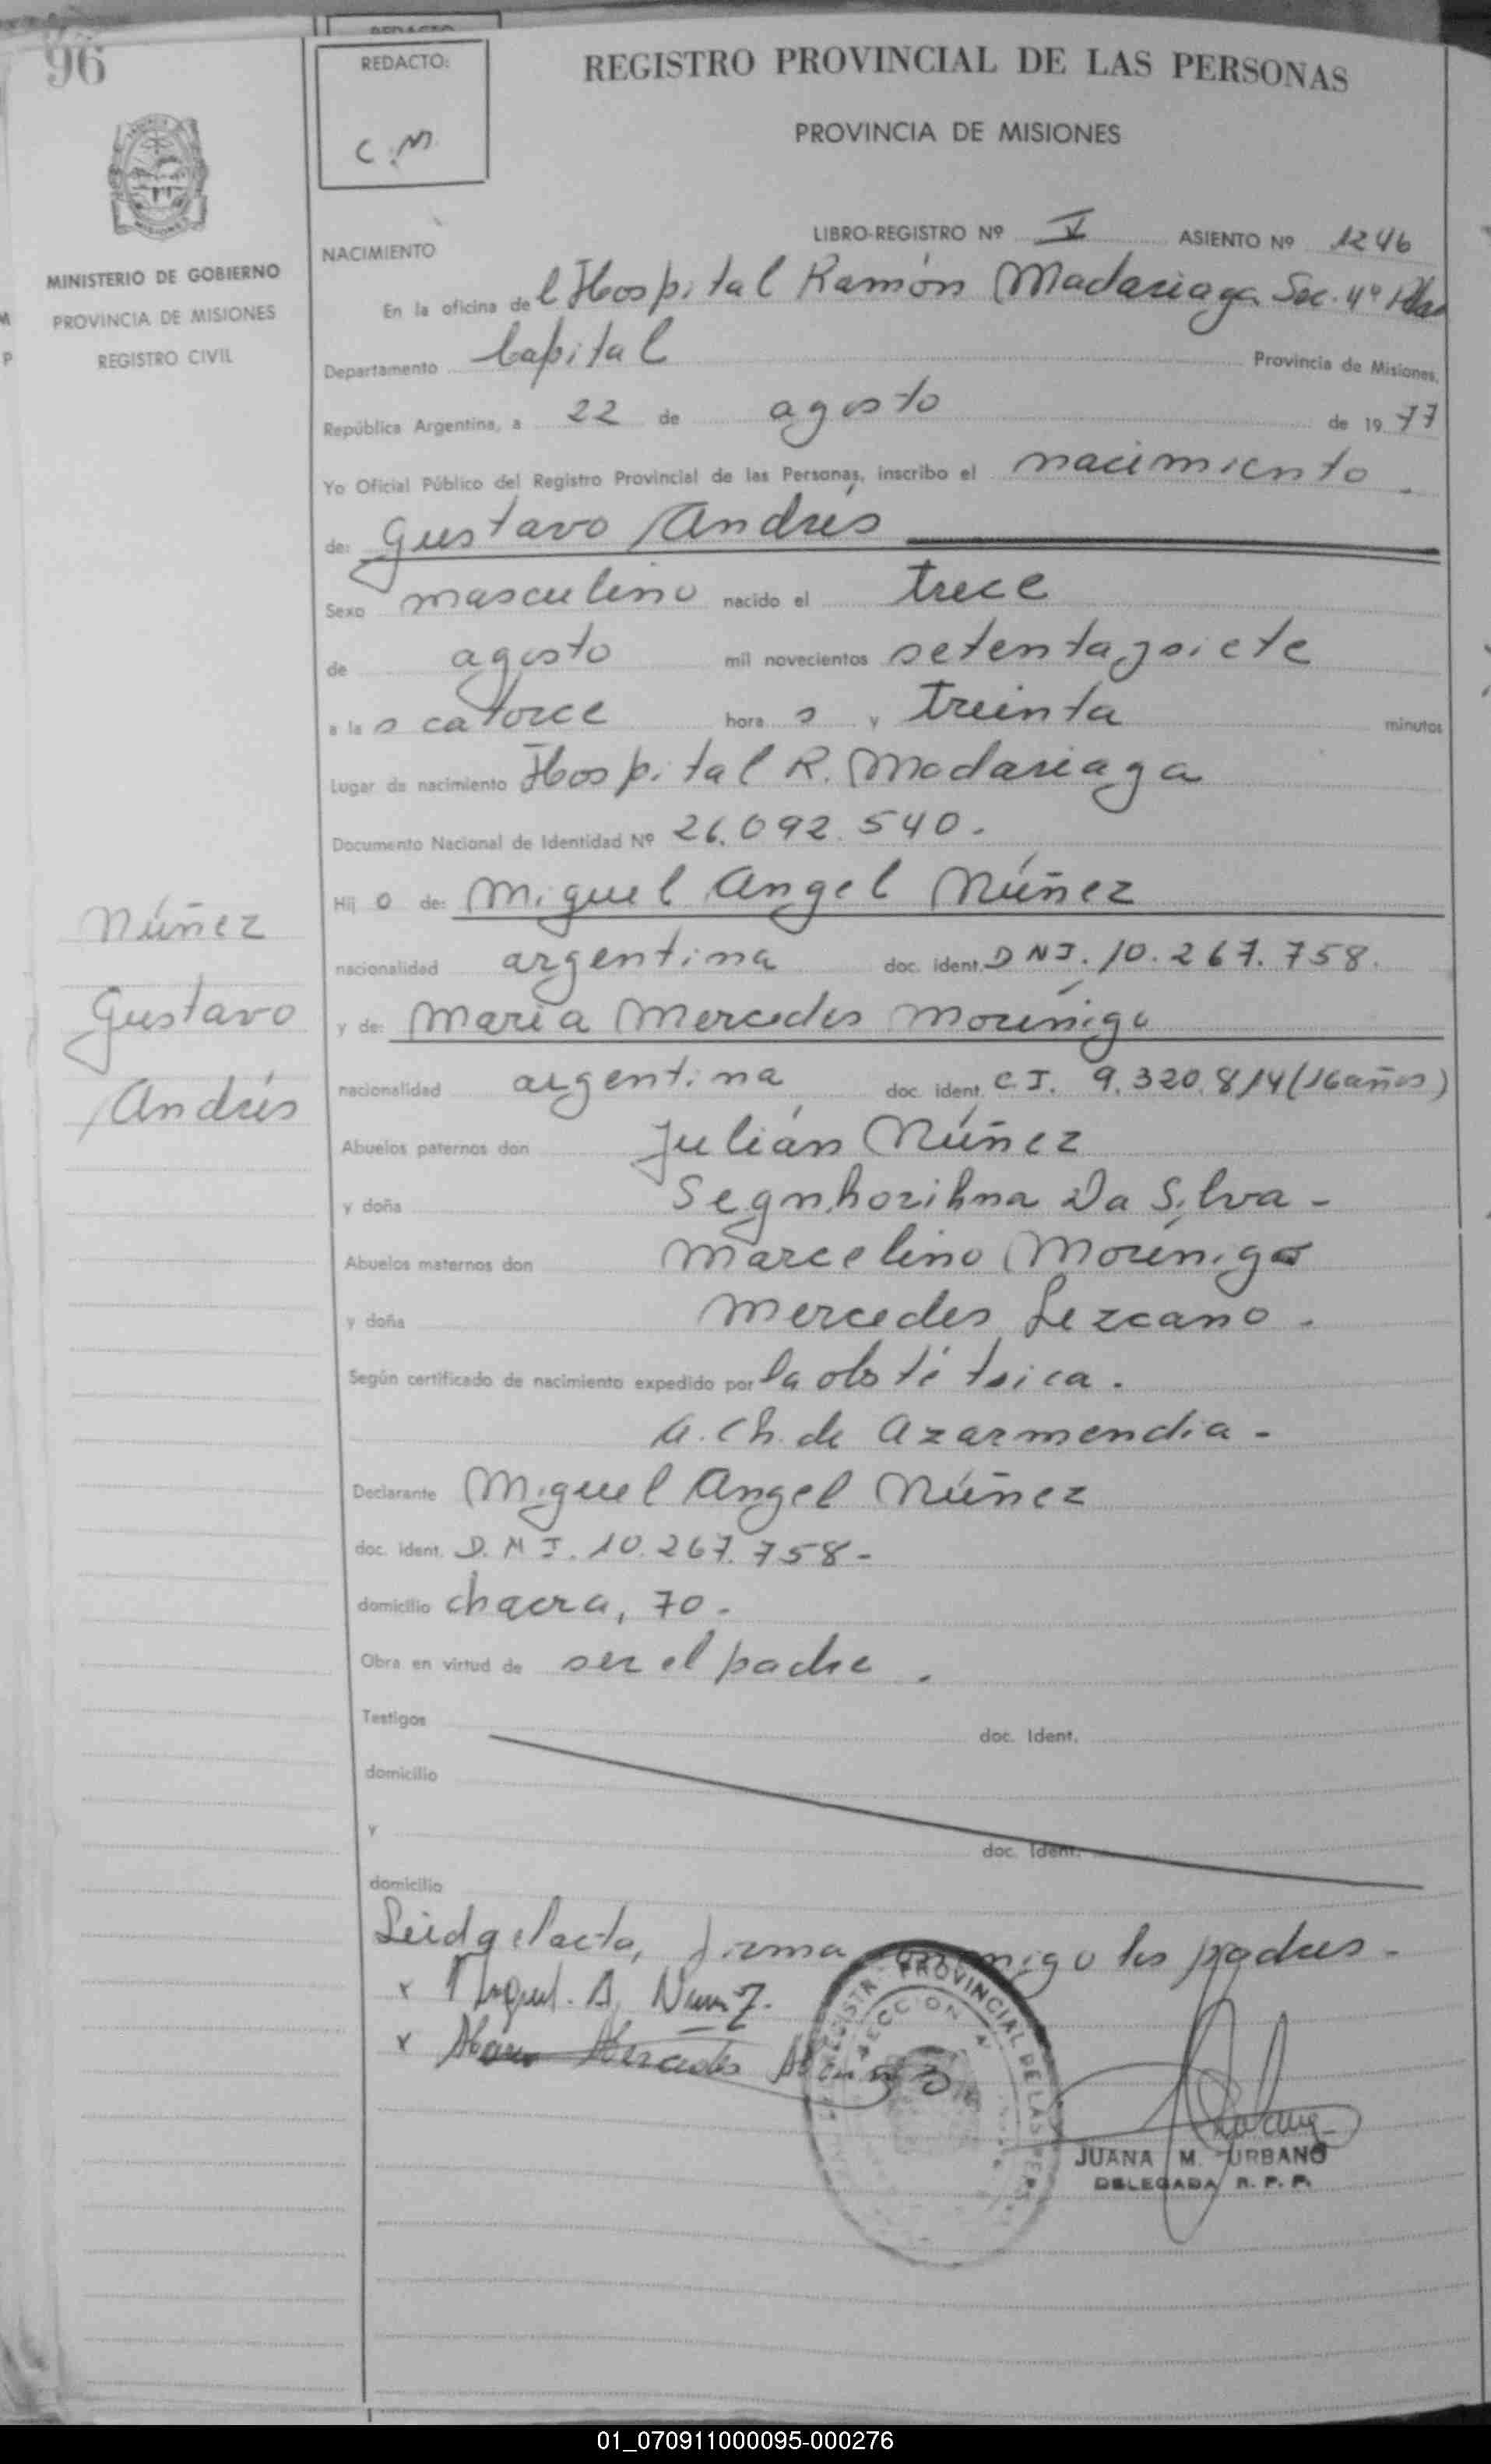 96
REDACTO:
C.M.
REGISTRO PROVINCIAL DE LAS PERSONAS
PROVINCIA DE MISIONES
MINISTERIO DE GOBIERNO
PROVINCIA DE MISIONES
REGISTRO CIVIL
LIBRO-REGISTRO Nº V ASIENTO Nº 1246
NACIMIENTO
En la oficina del Hospital Ramón Madariaga Sec. 4ª
Departamento Capital Provincia de Misiones,
República Argentina, a 22 de agosto de 1977
Yo Oficial Público del Registro Provincial de las Personas, inscribo el nacimiento.
de: Gustavo Andrés
Sexo masculino nacido el trece
de agosto mil novecientos setentaysiete
a las catorce horas y treinta minutos
Lugar de nacimiento Hospital R. Madariaga
Documento Nacional de Identidad Nº 26.092.540.
Hijo de: Miguel Angel Núñez
nacionalidad argentina doc. ident. DNI. 10.267.758.
y de: María Mercedes Morínigo
nacionalidad argentina doc. ident. C.I. 9.320.814 (16 años)
Núñez
Gustavo
Andrés
Abuelos paternos don Julián Núñez
y doña Da Silva -
Abuelos maternos don Marcelino Morínigo
y doña Mercedes Lezcano.
Según certificado de nacimiento expedido por la obstétrica.
A. Ch. de Azarmendia -
Declarante Miguel Angel Núñez
doc. ident. D.N.I. 10.267.758-
domicilio chacra, 70.
Obra en virtud de ser el padre.
Testigos doc. Ident.
domicilio
y doc. Ident.
domicilio
Leida el acta, firma conmigo los padres.
x Miguel. A. Nuñez.
x Maria Mercedes
REGISTRO PROVINCIAL DE LAS PER
SECCION 4
JUANA M. URBANO
DELEGADA R. P. P.
01_070911000095-000276